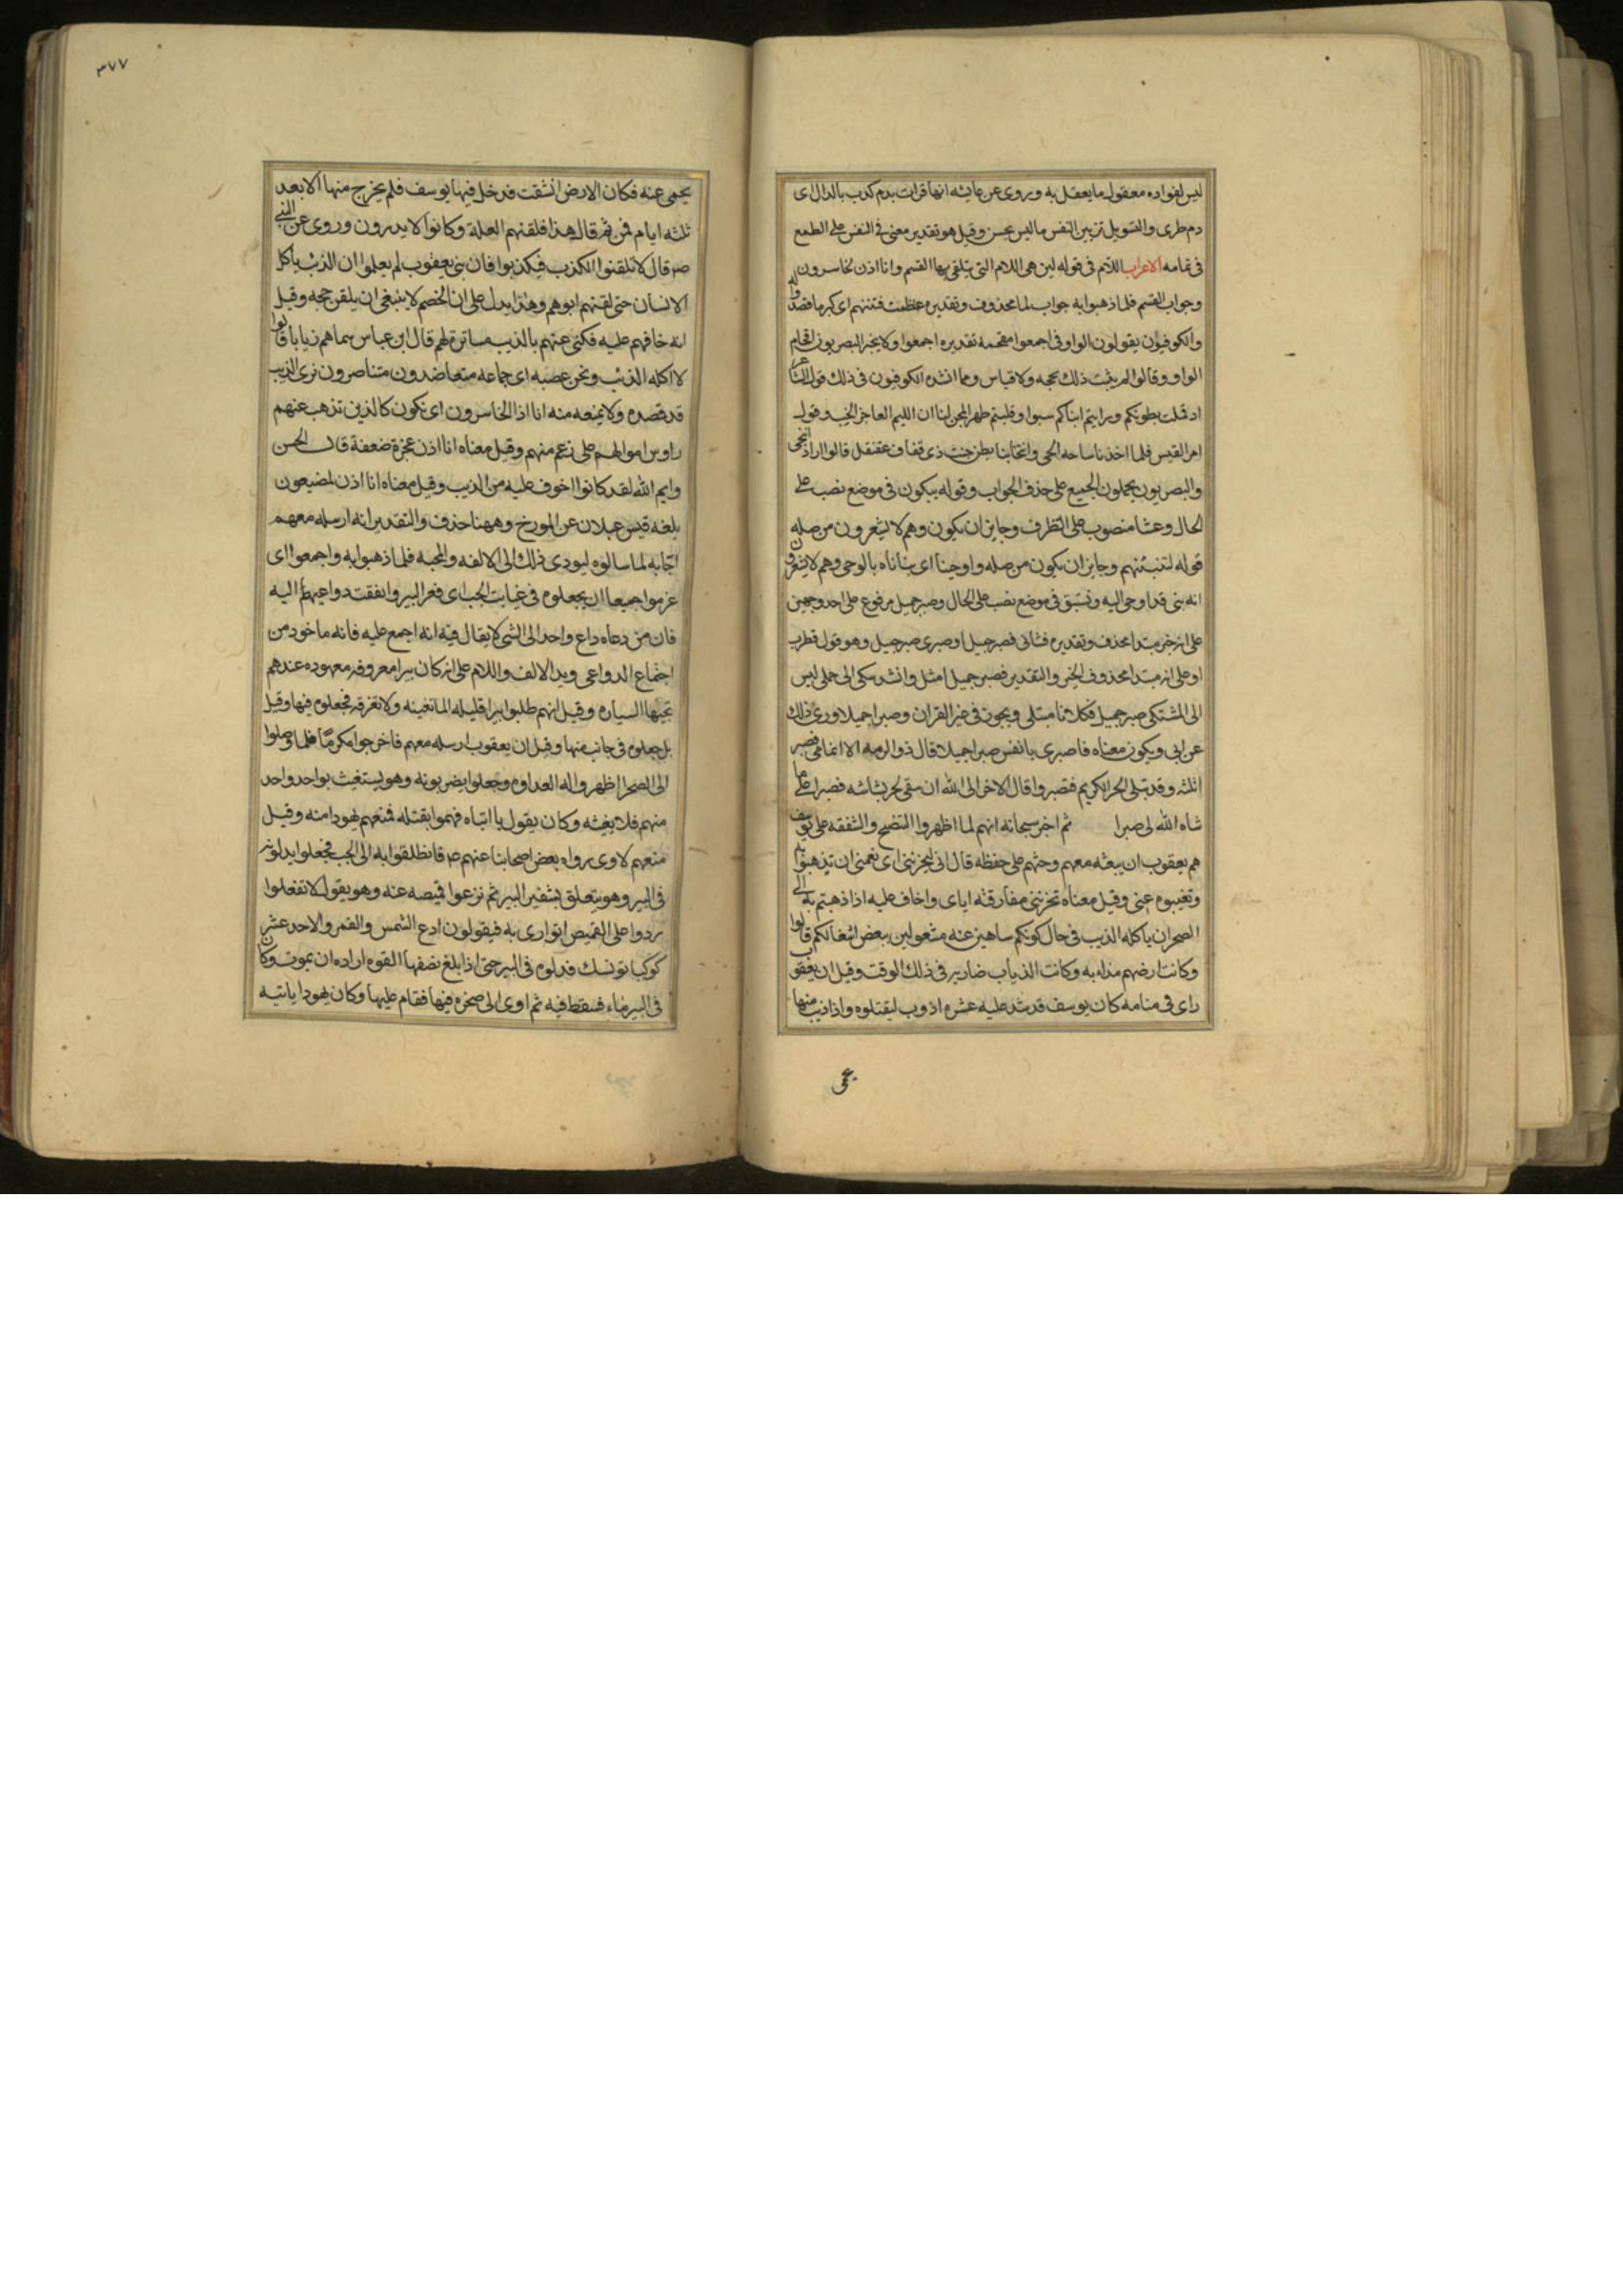 ليس لفواده معقول ما يعقل به وروى عن عايشه انها قرات بدم كدب بالدال اى
دم طرى والتسويل تزيين النفس ما ليس بحسن وقيل هو تقدير معنى فى النفس على الطمع
فى تمامه الاعراب اللام فى قوله لين هى اللام التى يتلقى بها القسم وانا اذن لخاسرون
وجواب القسم فلما ذهبوا به جواب لما محذوف وتقديره عظمت فتنتهم اى كبر ما قصدوا له
والكوفيون يقولون الواو فى اجمعوا مقحمه تقديره اجمعوا ولا يجيز البصريون اقحام
الواو وقالوا لم يثبت ذلك بحجه ولا قياس ومما انشده الكوفيون فى ذلك قول الشاعر
اد قملت بطونكم ورايتم ابناكم سبوا وقلبتم ظهر المجن لنا ان الليم العاجز الخب وقول
امر القيس فلما اخذنا ساحه الحى وانتحا بنا بطن خبت ذى قفاف عقنقل قالوا اراد انتحى
والبصريون يحملون الجميع على حذف الجواب وقوله يبكون فى موضع نصب على
الحال وعشا منصوب على الظرف وجايز ان يكون وهم لا يشعرون من صله
قوله لتنبئنهم وجايز ان يكون من صله واوحينا اى نباناه بالوحى وهم لا يشعرون
انه نبى قد اوحى اليه ونستبق فى موضع نصب على الحال وصبر جميل مرفوع على احد وجهين
على انه خبر مبتدا محذوف وتقديره فشانى فصبر جميل او صبرى صبر جميل وهو قول قطرب
او على انه مبتدا محذوف الخبر والتقدير فصبر جميل امثل وانشد شكى الى جملى ليس
الى المشتكى صبر جميل فكلانا مبتلى ويجوز فى غير القران وصبرا جميلا وروى ذلك
عن ابى ويكون معناه فاصبرى يا نفس صبرا جميلا قال ذو الرمه الا انما مى فصبر
اثلثه وقد يبتلى الحر الكريم فصبر وقال الاخر ابى الله ان سقى لحر بشاشه فصبرا على ما
شاه الله لى صبرا ثم اخبر سبحانه انهم لما اظهروا النصح والشفقه على يوسف
هم يعقوب ان يبعثه معهم وحثهم على حفظه قال انى ليحزننى اى يغمنى ان تذهبوا به
وتغيبوه عنى وقيل معناه تحزننى مفارقته اياى واخاف عليه اذا ذهبتم به الى
الصحرا ان ياكله الذيب فى حال كونكم ساهين عنه مشغولين ببعض اشغالكم قالوا
وكانت ارضهم مذابه وكانت الذياب ضاريه فى ذلك الوقت وقيل ان يعقوب
راى فى منامه كان يوسف قد شد عليه عشره اذوب ليقتلوه واذا ذيب منها
يحمى
٣٧٧
يحمى عنه فكان الارض انشقت فدخل فيها يوسف فلم يخرج منها الا بعد
ثلثه ايام فمن ثم قال هذا فلقنهم العلة وكانوا لا يدرون وروى عن النبى
ص قال لا تلقنوا الكذب فيكذبوا فان بنى يعقوب لم يعلموا ان الذئب ياكل
الانسان حتى لقنهم ابوهم وهذا يدل على ان الخصم لا ينبغى ان يلقن حجه وقيل
انه خافهم عليه فكنى عنهم بالذيب مساترة لهم قال ابن عباس سماهم ذيابا قالوا
لا اكله الذئب ونحن عصبه اى جماعه متعاضدون متناصرون نرى الذيب
قد قصده ولا يمنعه منه انا اذا لخاسرون اى نكون كالذين تذهب عنهم
راوس اموالهم على زعم منهم وقيل معناه انا اذن عجزة ضعفة قال الحسن
وايم الله لقد كانوا اخوف عليه من الذيب وقيل معناه انا اذن لمضيعون
بلغه قيس عيلان عن المورخ وههنا حذف والتقدير انه ارسله معهم
اجابه لما سالوه ليودى ذلك الى الالفه والمحبه فلما ذهبوا به واجمعوا اى
عزموا جميعا ان يجعلوه فى غيابت الجب اى قعر البير واتفقت دواعيهم اليه
فان من دعاه داع واحد الى الشى لا يقال فيه انه اجمع عليه فانه ماخوذ من
اجتماع الدواعى ويد الالف واللام على انه كان بيرا معروفه معهوده عندهم
تجيها السياره وقيل انهم طلبوا بيرا قليله الما تغيبه ولا تغرقه فجعلوه فيها وقيل
بل جعلوه فى جانب منها وقيل ان يعقوب ارسله معهم فاخرجوا مكرما فلما وصلوا
الى الصحرا اظهروا له العداوه وجعلوا يضربونه وهو يستغيث بواحد واحد
منهم فلا يغيثه وكان يقول يا ابتاه فهموا بقتله فمنعهم يهودا منه وقيل
منعهم لاوى رواه بعض اصحابنا عنهم ص فانطلقوا به الى الجب فجعلوا يدلونه
فى البير وهو يتعلق بشفير البير ثم نزعوا قميصه عنه وهو يقول لا تفعلوا
ردوا على القميص اتوارى به فيقولون ادع الشمس والقمر والاحد عشر
كوكبا تونسك فدلوه فى البير حتى اذا بلغ نصفها القوه اراده ان يموت وكان
فى البير ماء فسقط فيه ثم اوى الى صخره فيها فقام عليها وكان يهودا ياتيه